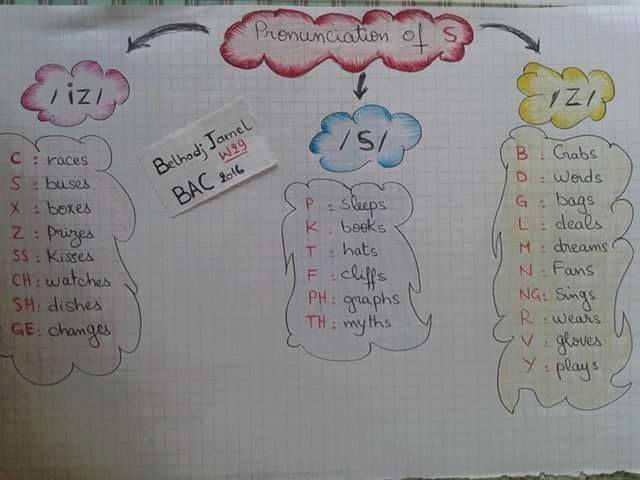 Pronunciation of S
/iz/
C : races
S : buses
X : boxes
Z : Prizes
SS : Kisses
CH : watches
SH : dishes
GE : changes
Belhadj Jamel
W29
BAC 2016
/S/
P : sleeps
K : books
T : hats
F : cliffs
PH : graphs
TH : myths
/Z/
B : Gabs
D : Words
G : bags
L : deals
M : dreams
N : Fans
NG : Sings
R : wears
V : gloves
Y : plays